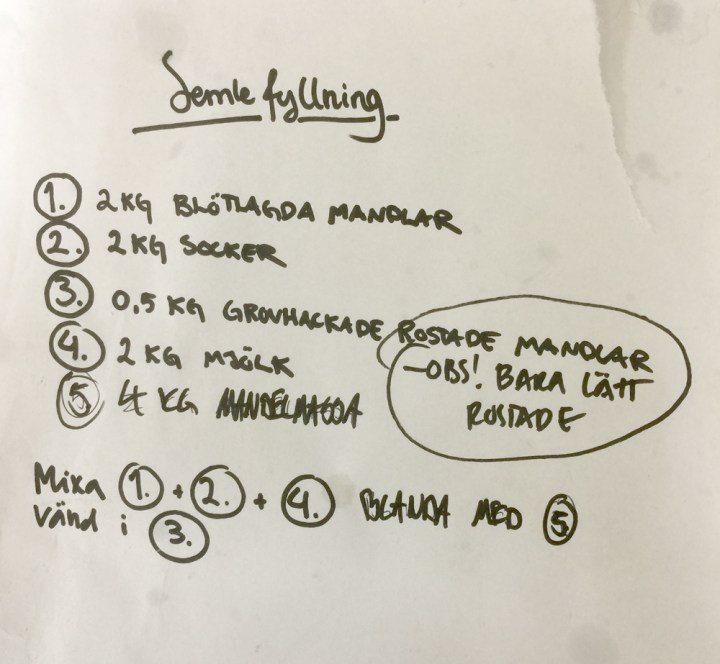 Semle fyllning
1. 2 KG BLÖTLAGDA MANDLAR
2. 2 KG SOCKER
3. 0,5 KG GROVHACKADE ROSTADE MANDLAR
4. 2 KG MJÖLK
—OBS! BARA LÄTT
ROSTADE
5. 4 KG MANDELMASSA
Mixa 1. + 2. + 4. BLANDA MED 5
Vänd i 3.